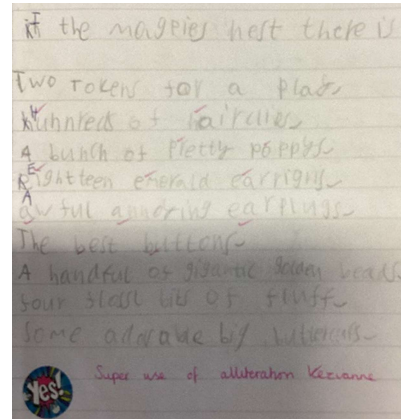 If the magpies nest there is
Two Tokens for a
Huhnreds of
A bunch of Pretty poppys
Eighteen emerald earrigns
Awful annoring earplugs
The best buttons
A handful of gigantic golden beads
four bits of fluff
Some adorable big
Yes!
Super use of alliteration Kezianne